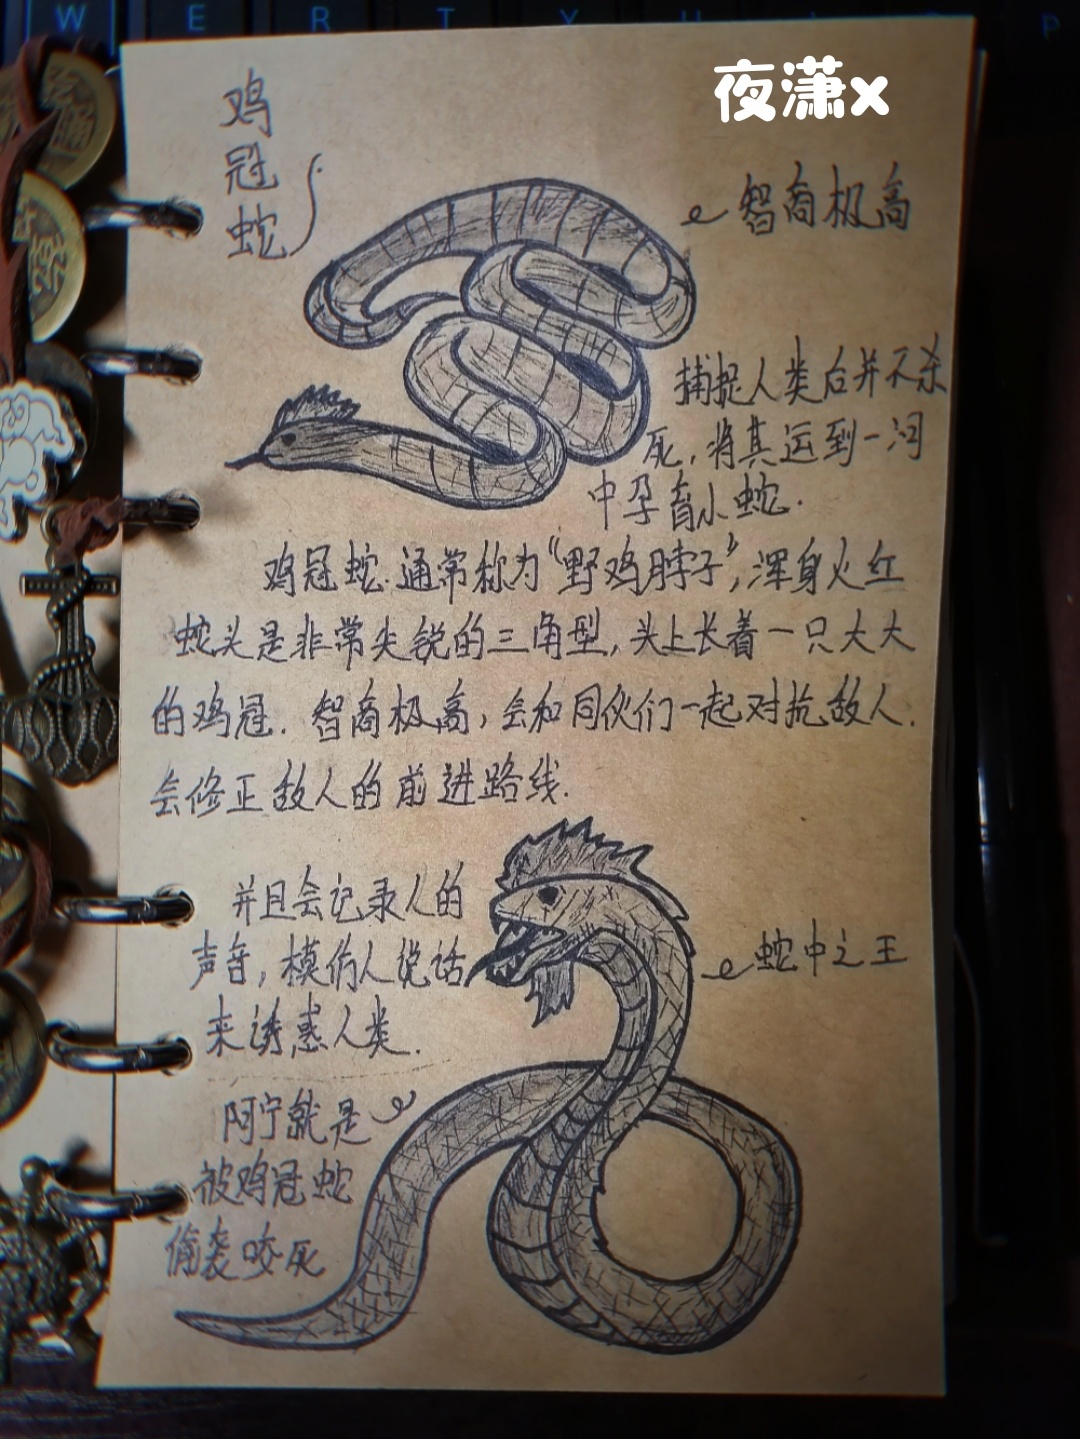 W E R T Y U
夜潇x
鸡
冠
蛇
智商极高
捕捉人类后并不杀
死,将其运到一河
中孕育小蛇.
鸡冠蛇.通常称为“野鸡脖子”,浑身火红
蛇头是非常尖锐的三角型,头上长着一只大大
的鸡冠.智商极高,会和同伙们一起对抗敌人.
会修正敌人的前进路线.
并且会记录人的
声音,模仿人说话
来诱惑人类.
蛇中之王
阿宁就是
被鸡冠蛇
偷袭咬死